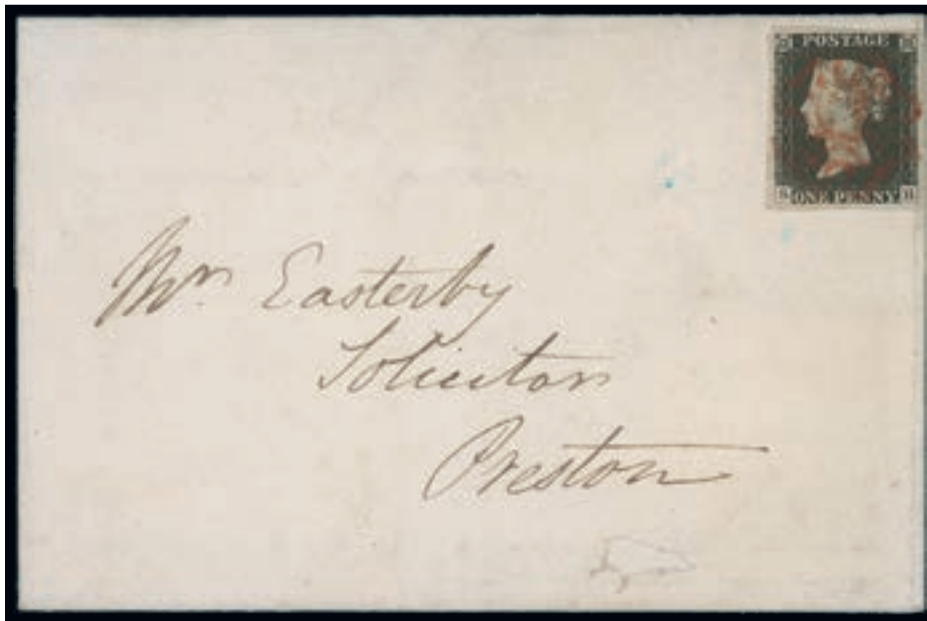 POSTAGE
ONE PENNY
Mr. Easterby
Solicitor
Preston